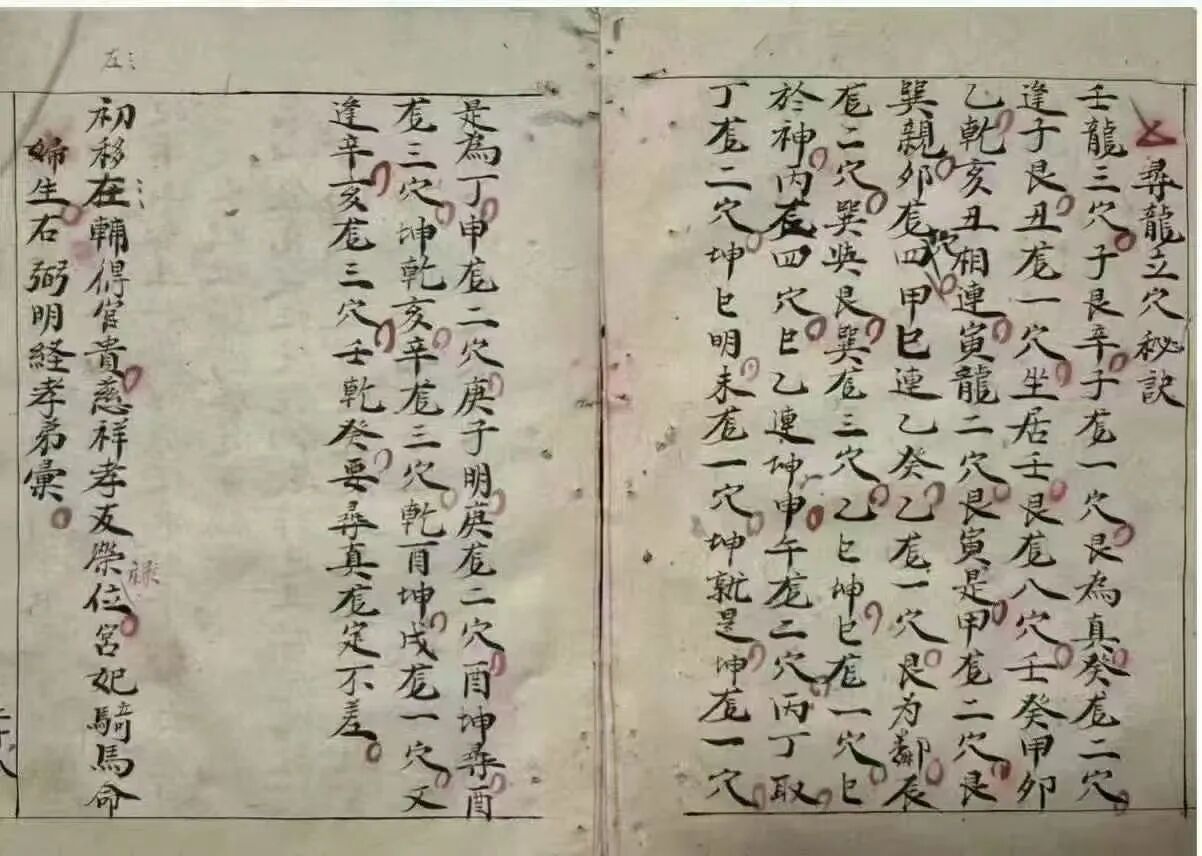 尋龍立穴秘訣
壬龍三穴子艮辛子龙一穴艮為真癸龙二穴
逢子艮丑龙一穴坐居壬艮龙八穴壬癸甲卯
乙乾亥丑相連寅龍二穴艮寅是甲龙二穴艮
巽親卯龙四穴甲巳連乙癸乙龙一穴艮为鄰辰
龙二穴巽與艮巽龙三穴乙巳坤巳龙一穴巳
於神丙龙四穴巳乙連坤申午龙二穴丙丁取
丁龙二穴坤巳明未龙一穴坤就是坤龙一穴
是為丁申龙二穴庚子明庚龙二穴酉坤尋酉
龙三穴坤乾亥辛龙三穴乾酉坤戌龙一穴又
逢辛亥龙三穴壬乾癸要尋真龙定不差
左
初移在輔得官貴慈祥孝友榮禄位宫妃騎馬命
婦生右弼明経孝弟彙